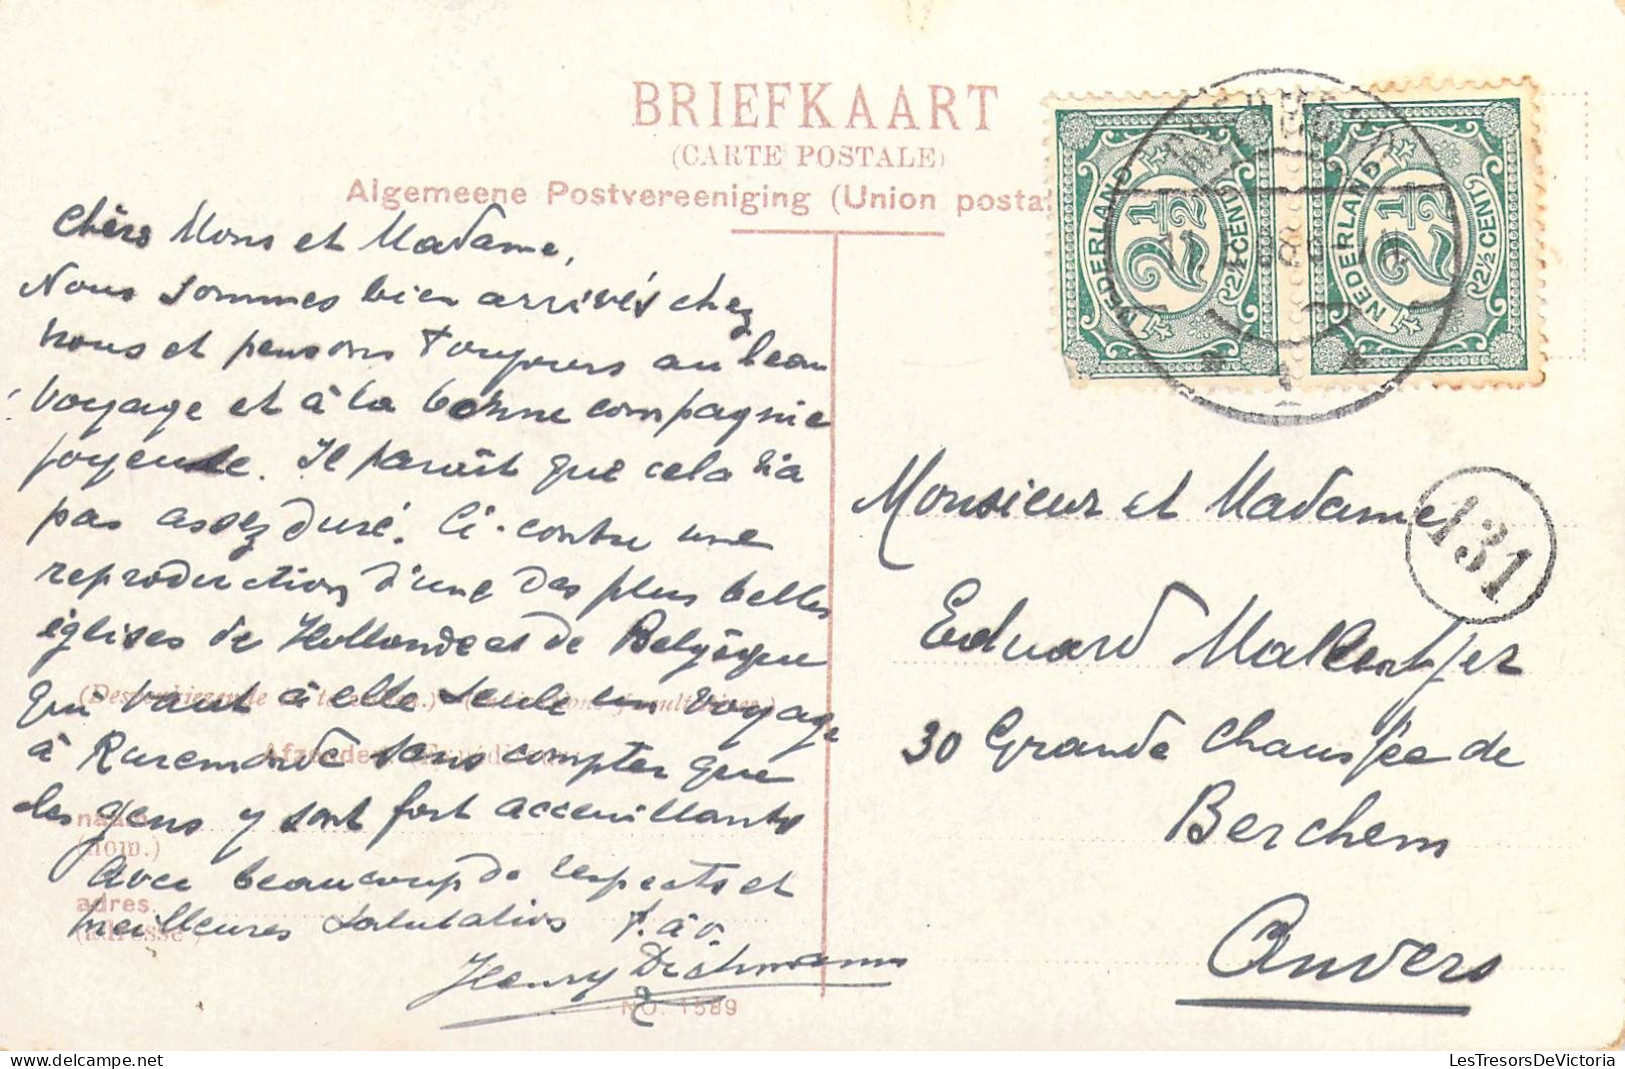 BRIEFKAART
(CARTE POSTALE)
Algemeene Postvereeniging (Union posta
Chère Mons et Madame,
Nous sommes bien arrivés chez
nous et pensons toujours au beau
voyage et à la bonne compagnie
joyeuse. Il paraît que cela n'a
pas assez duré. Ci-contre une
reproduction d'une des plus belles
églises de Hollande et de Belgique
qui vaut à elle seule un voyage
à Ruremonde sans compter que
les gens y sont fort acceuillants
Avec beaucoup de respects et
meilleures salutations t. à v.
Henry Dichmann
naam
(nom.)
adres.
(adresse)
NO. 1589
NEDERLAND 2½ 2½ CENT
NEDERLAND 2½ 2½ CENT
131
Monsieur et Madame
Eduard
30 Grande Chaussée de
Berchem
Anvers
LesTresorsDeVictoria